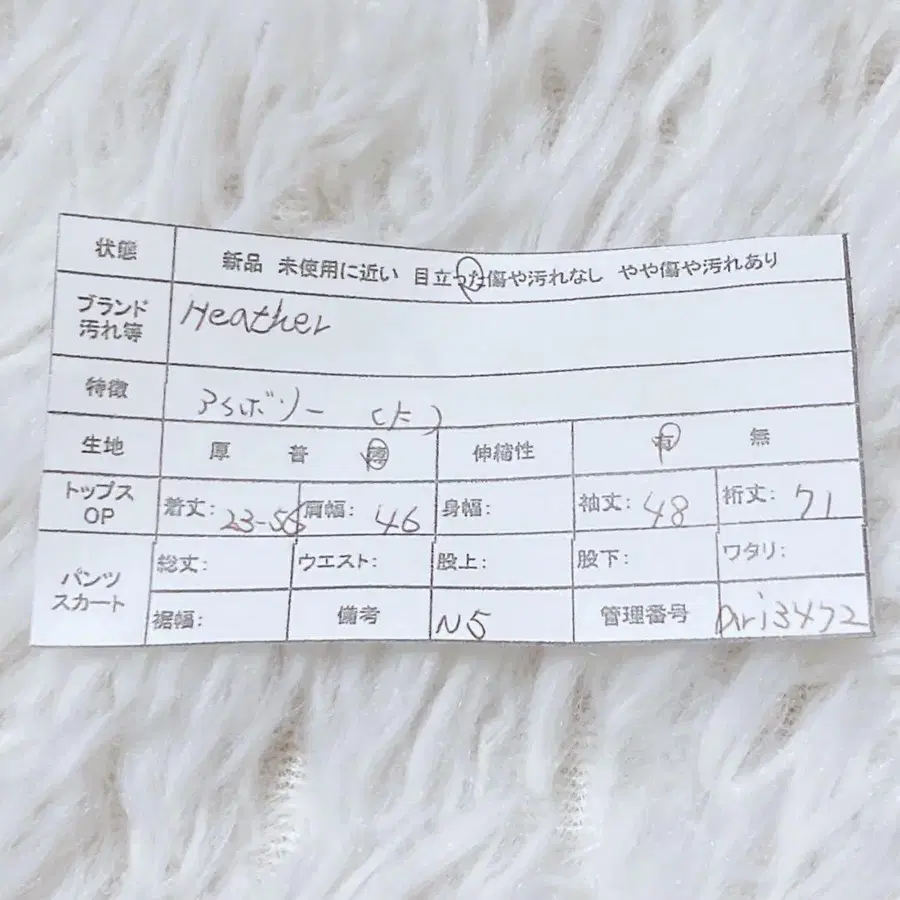 状態 新品 未使用に近い 目立った傷や汚れなし やや傷や汚れあり
ブランド Heather
汚れ等
特徴 (ド)
生地 厚 普 薄 伸縮性 有 無
トップス OP 着丈: 23-56 肩幅: 46 身幅: 袖丈: 48 裄丈: 71
パンツ スカート 総丈: ウエスト: 股上: 股下: ワタリ:
裾幅: 備考 N5 管理番号 Dri3472